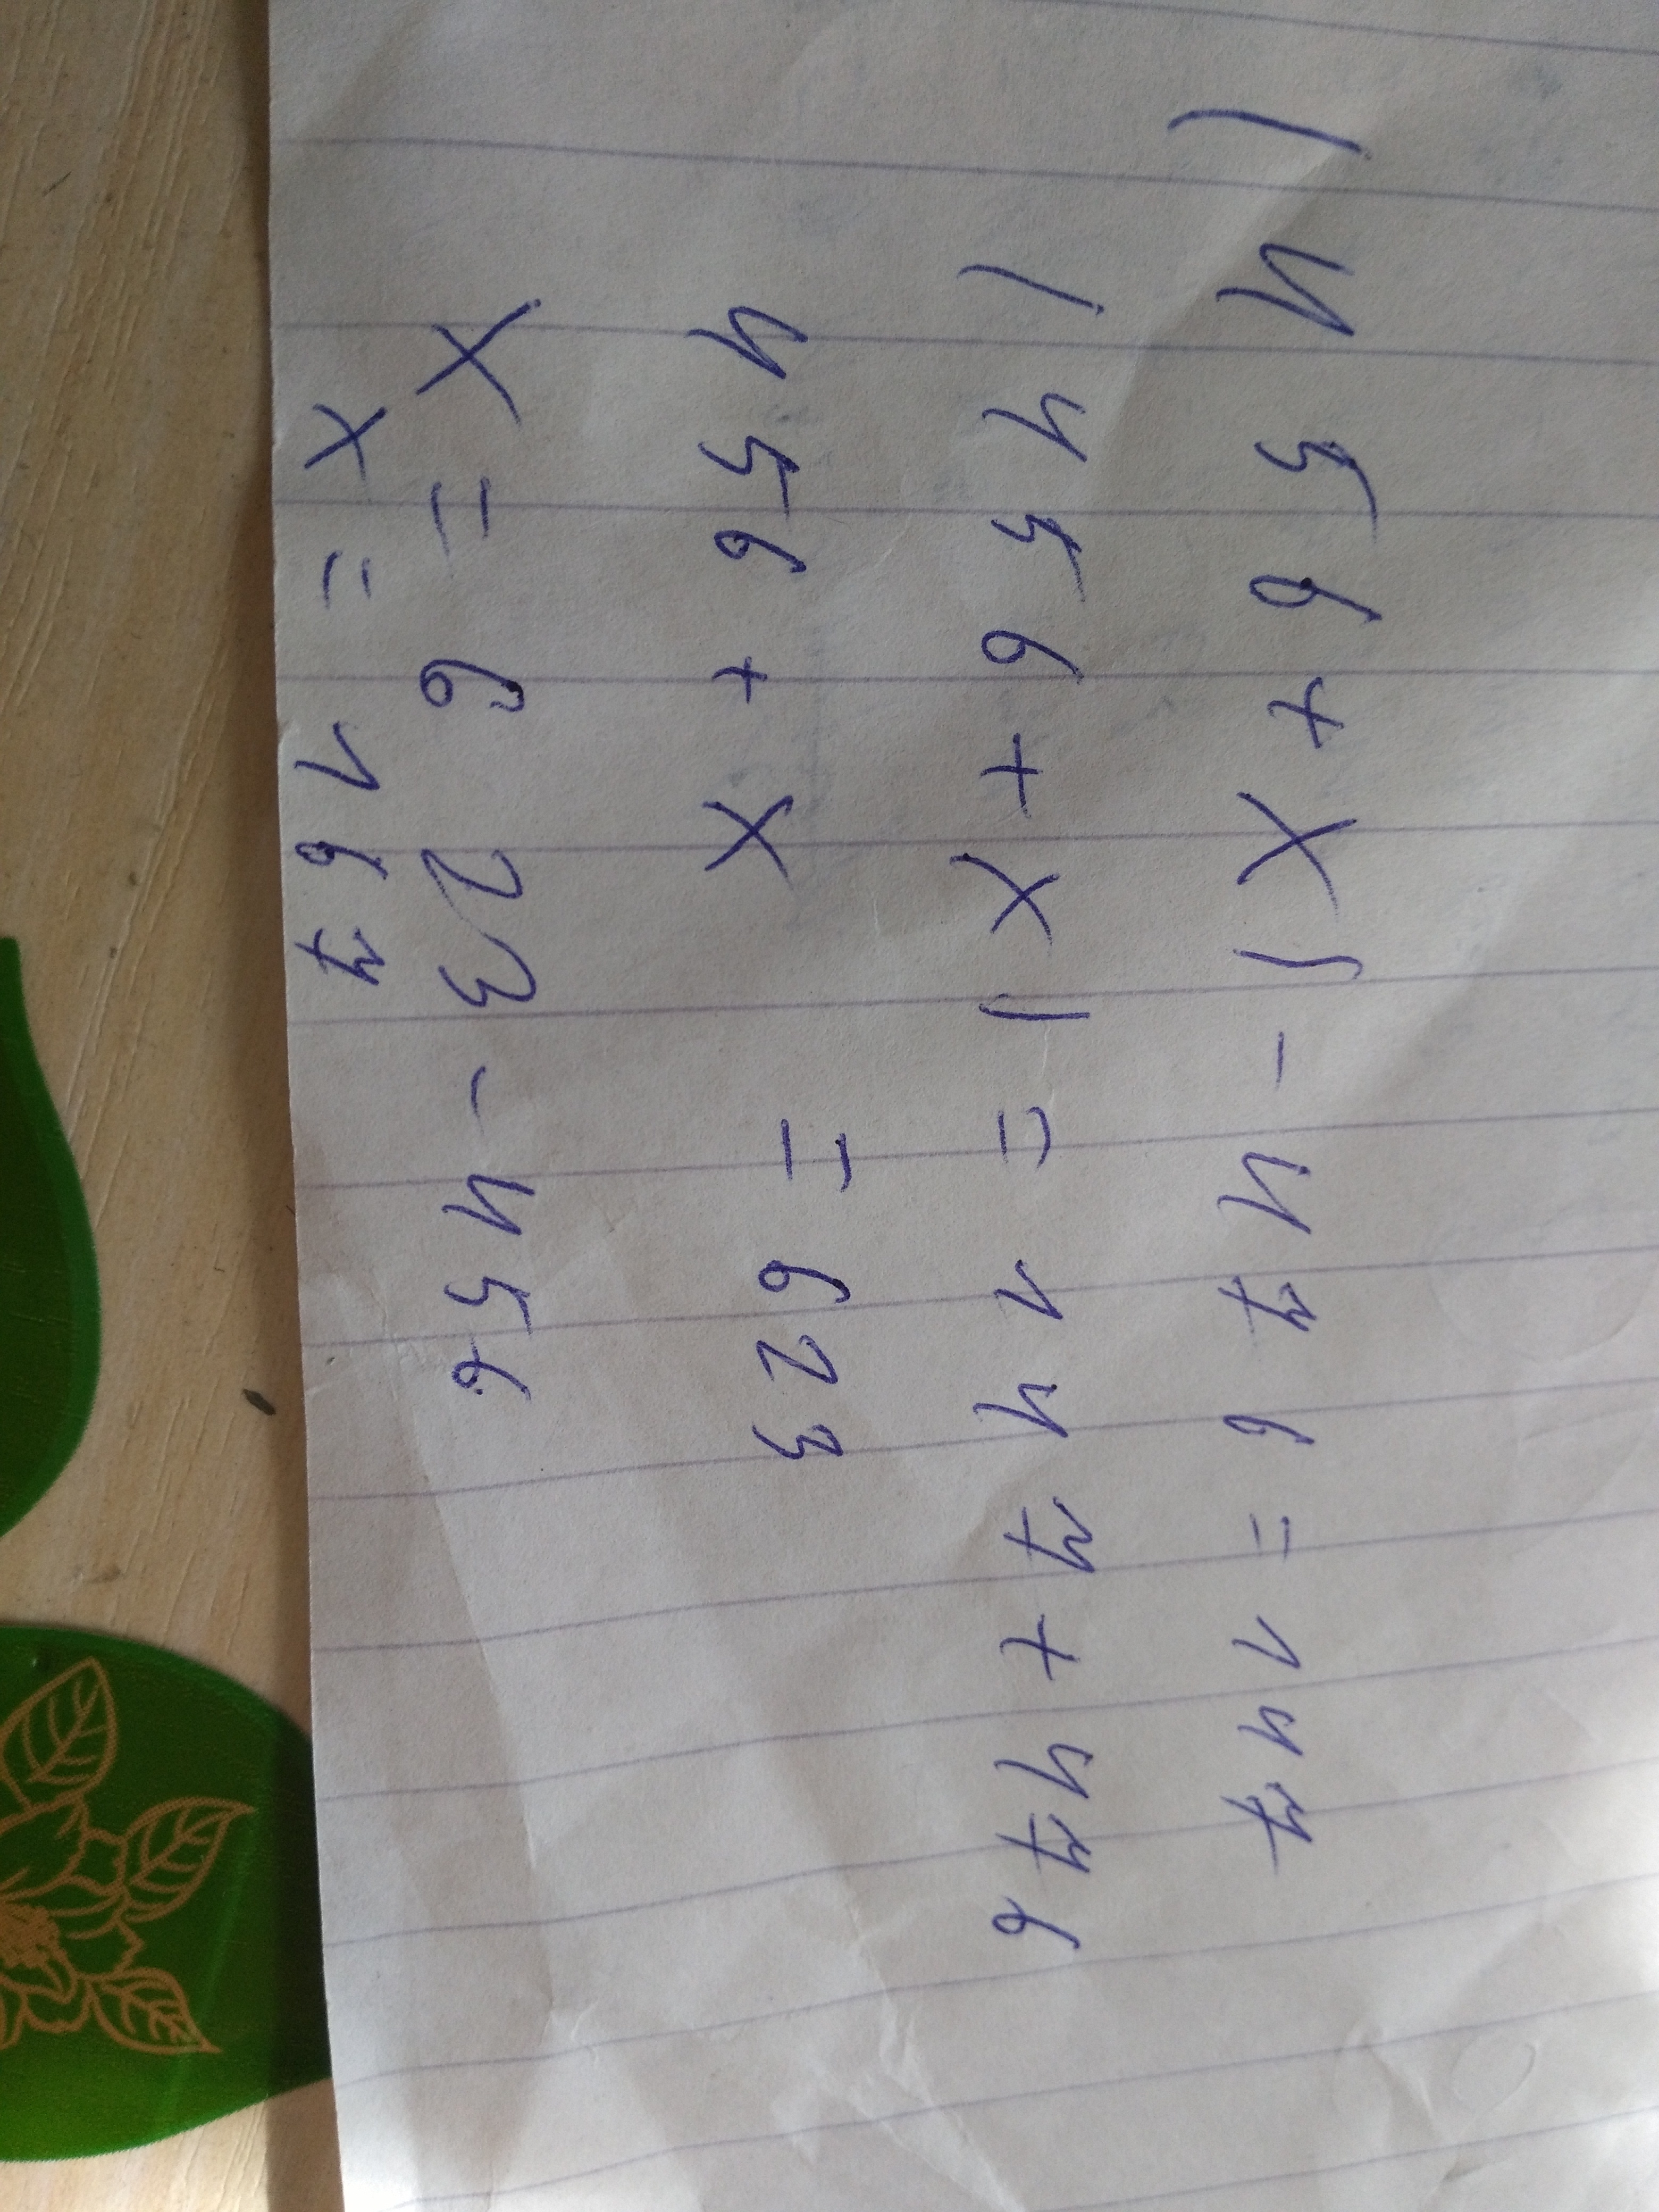 (456+x)-476=147
(456+x)=147+476
456+x=623
x=623-456
x=167